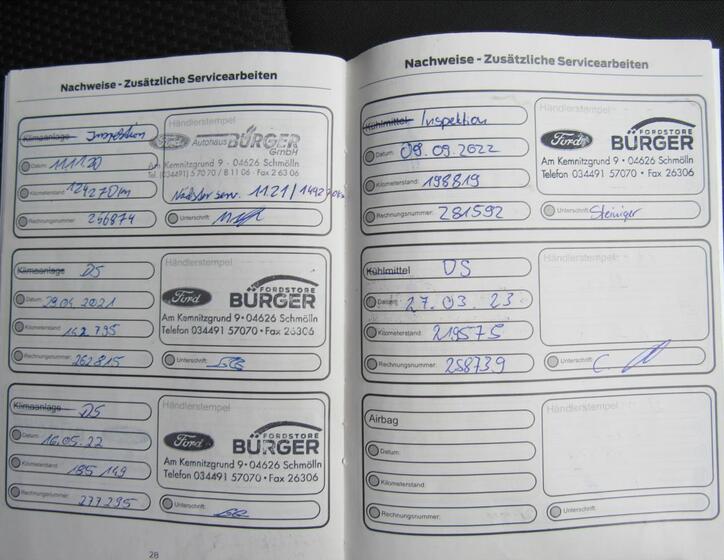 Nachweise - Zusätzliche Servicearbeiten
Klimaanlage Inspektion
Datum: 11.11.20
Kilometerstand: 124270km
Rechnungsnummer: 256874
Händlerstempel
Ford Autohaus BÜRGER GmbH
Am Kemnitzgrund 9 · 04626 Schmölln
Tel. (034491) 57070 / 8 11 06 · Fax 2 63 06
Nächster serv. 11.21 /
Unterschrift:
Klimaanlage DS
Datum: 29.04.2021
Kilometerstand: 142795
Rechnungsnummer: 262815
Händlerstempel
Ford FORDSTORE BÜRGER
Am Kemnitzgrund 9 · 04626 Schmölln
Telefon 034491 57070 · Fax 26306
Unterschrift:
Klimaanlage DS
Datum: 16.05.22
Kilometerstand: 185149
Rechnungsnummer: 277295
Händlerstempel
Ford FORDSTORE BÜRGER
Am Kemnitzgrund 9 · 04626 Schmölln
Telefon 034491 57070 · Fax 26306
Unterschrift:
28
Nachweise - Zusätzliche Servicearbeiten
Kühlmittel Inspektion
Datum: 09.09.2022
Kilometerstand: 198819
Rechnungsnummer: 281592
Händlerstempel
Ford FORDSTORE BÜRGER
Am Kemnitzgrund 9 · 04626 Schmölln
Telefon 034491 57070 · Fax 26306
Unterschrift: Steiniger
Kühlmittel DS
Datum: 27.03.23
Kilometerstand: 219575
Rechnungsnummer: 258739
Händlerstempel
Unterschrift:
Airbag
Datum:
Kilometerstand:
Rechnungsnummer:
Händlerstempel
Unterschrift: